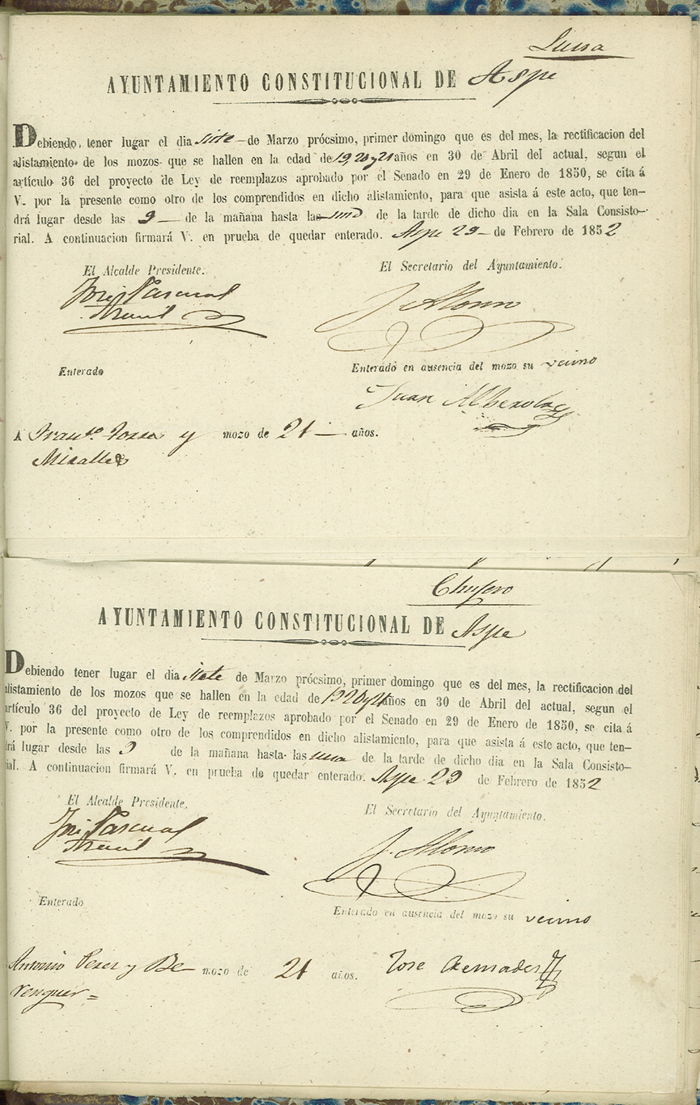 Luisa
AYUNTAMIENTO CONSTITUCIONAL DE Aspe
Debiendo tener lugar el dia siete de Marzo prócsimo, primer domingo que es del mes, la rectificacion del
alistamiento de los mozos que se hallen en la edad de 19, 20 y 21 años en 30 de Abril del actual, segun el
artículo 36 del proyecto de Ley de reemplazos aprobado por el Senado en 29 de Enero de 1850, se cita á
V. por la presente como otro de los comprendidos en dicho alistamiento, para que asista á este acto, que ten-
drá lugar desde las 9 de la mañana hasta las una de la tarde de dicho dia en la Sala Consisto-
rial. A continuacion firmará V. en prueba de quedar enterado. Aspe 29 de Febrero de 1852
El Alcalde Presidente. El Secretario del Ayuntamiento.
José Pascual J. Alonso
Enterado Enterado en ausencia del mozo su vecino
Juan Alberola
A Franco. y mozo de 21 años.
Miralles
AYUNTAMIENTO CONSTITUCIONAL DE Aspe
Debiendo tener lugar el dia siete de Marzo prócsimo, primer domingo que es del mes, la rectificacion del
alistamiento de los mozos que se hallen en la edad de 19 20 y 21 años en 30 de Abril del actual, segun el
artículo 36 del proyecto de Ley de reemplazos aprobado por el Senado en 29 de Enero de 1850, se cita á
V. por la presente como otro de los comprendidos en dicho alistamiento, para que asista á este acto, que ten-
drá lugar desde las 9 de la mañana hasta las una de la tarde de dicho dia en la Sala Consisto-
rial. A continuacion firmará V. en prueba de quedar enterado. Aspe 29 de Febrero de 1852
El Alcalde Presidente. El Secretario del Ayuntamiento.
José Pascual J. Alonso
Enterado Enterado en ausencia del mozo su vecino
Antonio Perez y Be mozo de 21 años. Jose Cremades
renguer =